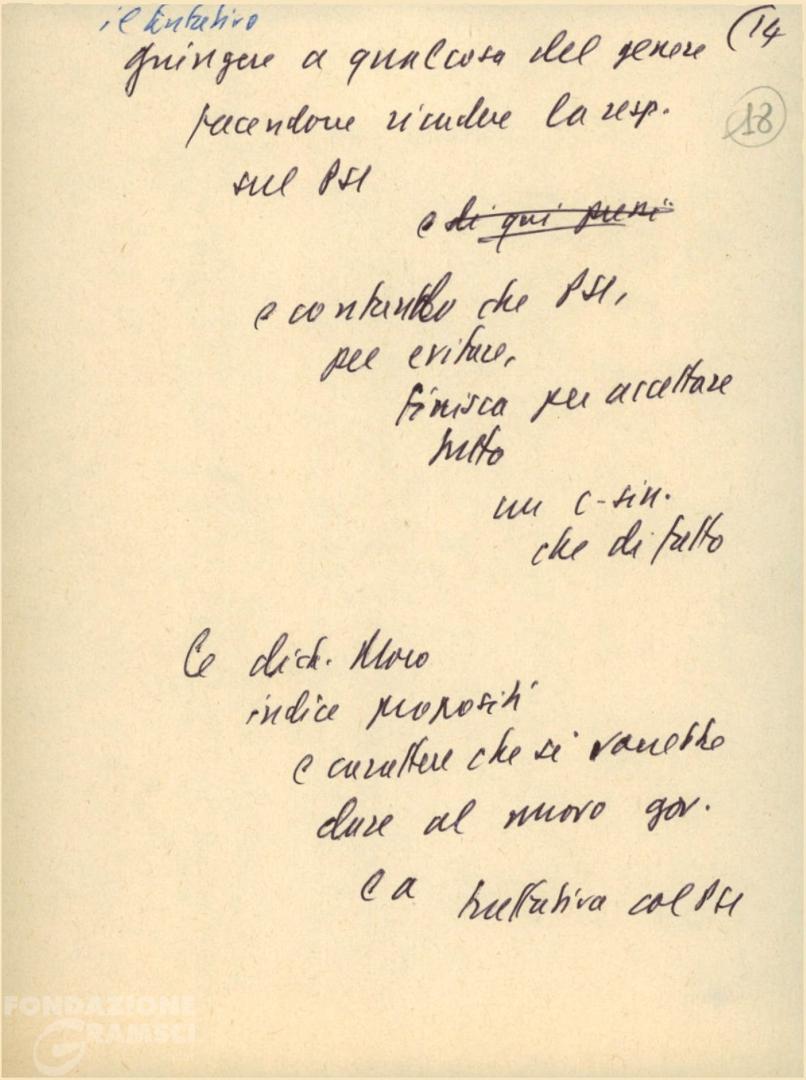 il tentativo
(14
giungere a qualcosa del genere
18
facendone ricadere la resp.
sul PSI
e di qui
e contando che PSI,
per evitare,
finisca per accettare
tutto
un c-sin.
che di fatto
Le dich. Moro
indice propositi
e carattere che si vorrebbe
dare al nuovo gov.
e a trattativa col PSI
FONDAZIONE
GRAMSCI